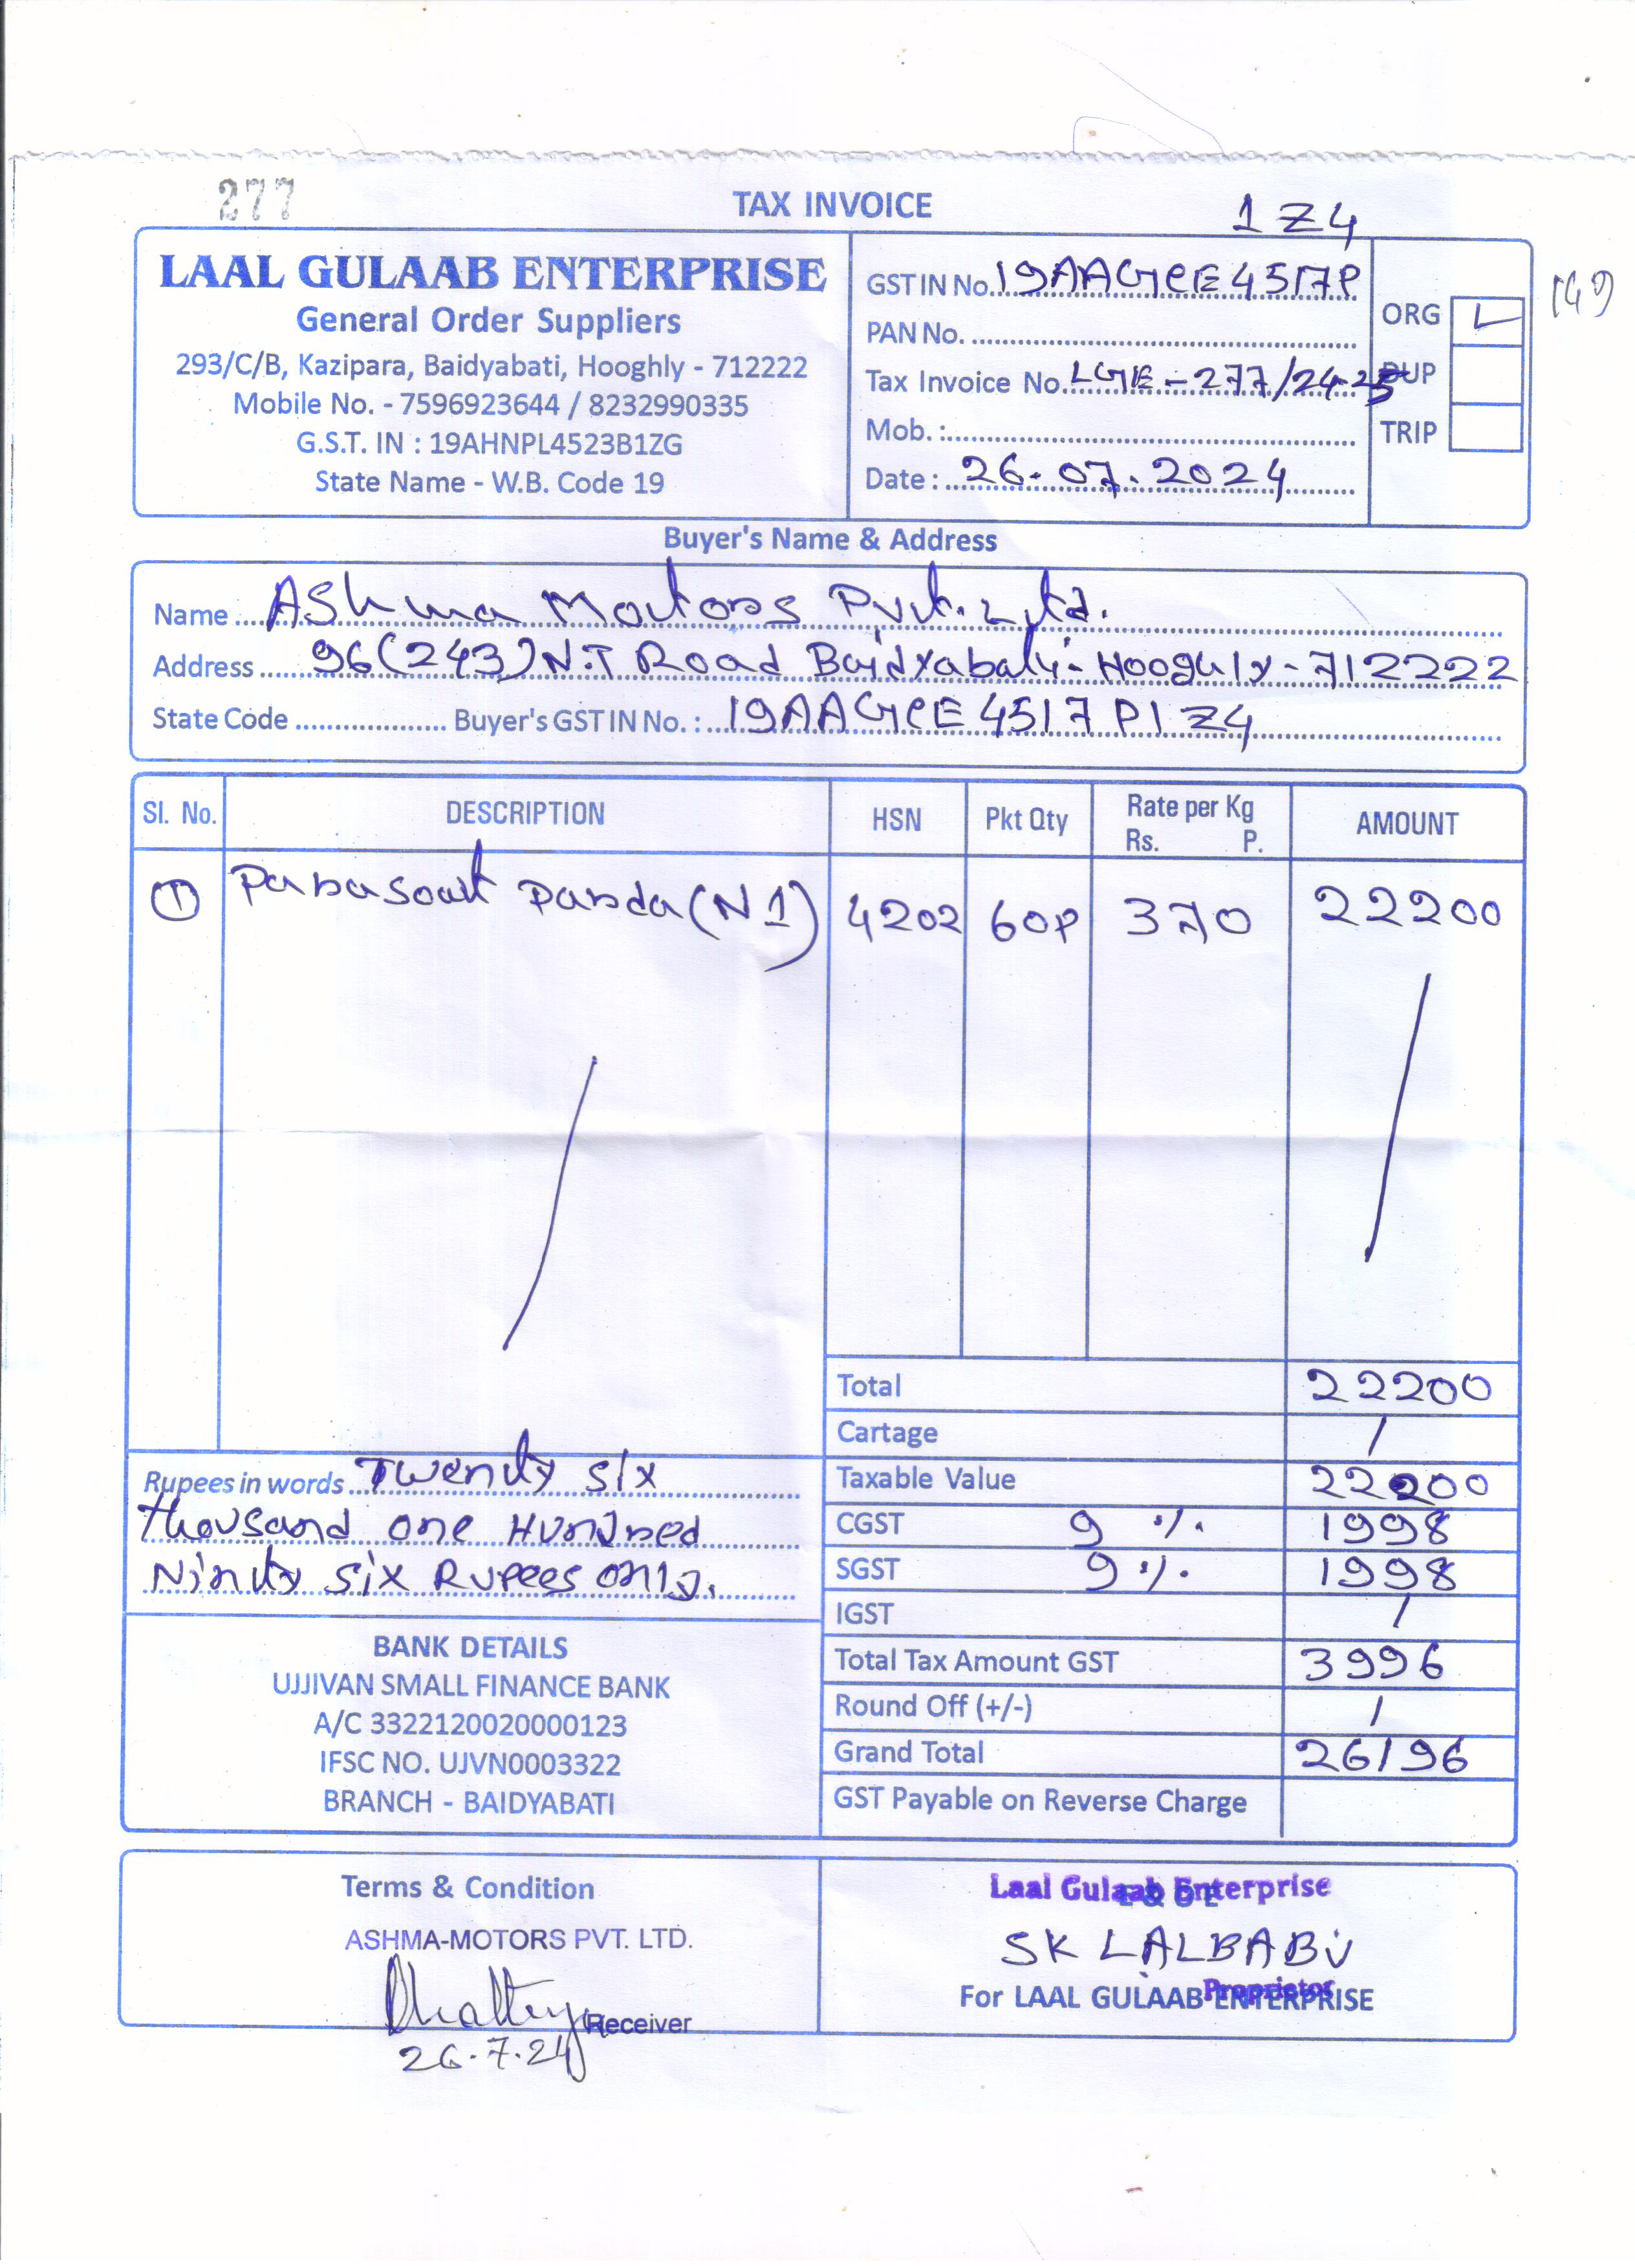 277
TAX INVOICE
1Z4
LAAL GULAAB ENTERPRISE
General Order Suppliers
293/C/B, Kazipara, Baidyabati, Hooghly - 712222
Mobile No. - 7596923644 / 8232990335
G.S.T. IN : 19AHNPL4523B1ZG
State Name - W.B. Code 19
GSTIN No. 19AAGCE4517P
PAN No.
Tax Invoice No. LGE-277/24-25
Mob. :
Date : 26-07-2024
ORG
DUP
TRIP
Buyer's Name & Address
Name Ashma Motors Pvt. Ltd.
Address 96(243)N.T Road Baidyabati-Hooghly-712222
State Code Buyer's GSTIN No. : 19AAGCE4517P1Z4
Sl. No. DESCRIPTION HSN Pkt Qty Rate per Kg Rs. P. AMOUNT
1 (N1) 4202 60P 370 22200
Total 22200
Cartage /
Taxable Value 22200
CGST 9 % 1998
SGST 9 % 1998
IGST /
Total Tax Amount GST 3996
Round Off (+/-) /
Grand Total 26196
GST Payable on Reverse Charge
Rupees in words Twenty six
thousand one Hundred
Ninty six Rupees only.
BANK DETAILS
UJJIVAN SMALL FINANCE BANK
A/C 3322120020000123
IFSC NO. UJVN0003322
BRANCH - BAIDYABATI
Terms & Condition
ASHMA-MOTORS PVT. LTD.
Receiver
26.7.24
Laal Gulaab Enterprise
E & O E
SK LALBABU
Proprietor
For LAAL GULAAB ENTERPRISE